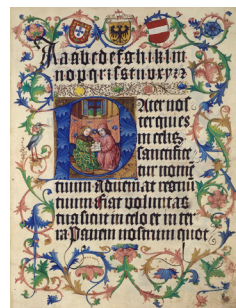 Aabcdefghiklm
nopqrſstuvxyz
PAter noſ
ter qui es
in celis
ſanctifice
tur nomen
tuum adveniat regnum
tuum fiat voluntas
tua ſicut in celo et in ter
ra Panem noſtrum quot